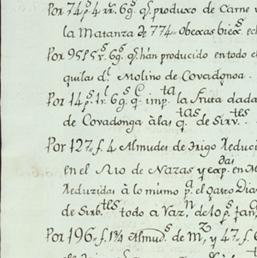 Por 74 p.s 4 r.s 6 g.s q.e produxo de Carne
la Matanza de 774 Obexas biexas
Por 95 p.s 5 r.s 6 g.s q.e han producido en todo e
quilas d.l Molino de Covadonga
Por 14 p.s 1 r.l 6 g.s q. imp.ta la Fruta dada
de Covadonga à las q.tas de Sirv.tes
Por 127 f. 4 Almudes de Trigo Reduci
en el Rio de Nazas y
Reduzidas à lo mismo p.a el Gasto Dia
de Sirb.tes todo à Raz.n de 10 p.s fan
Por 196 f. 1¾ Almud.s de M.z y 47 f. 6